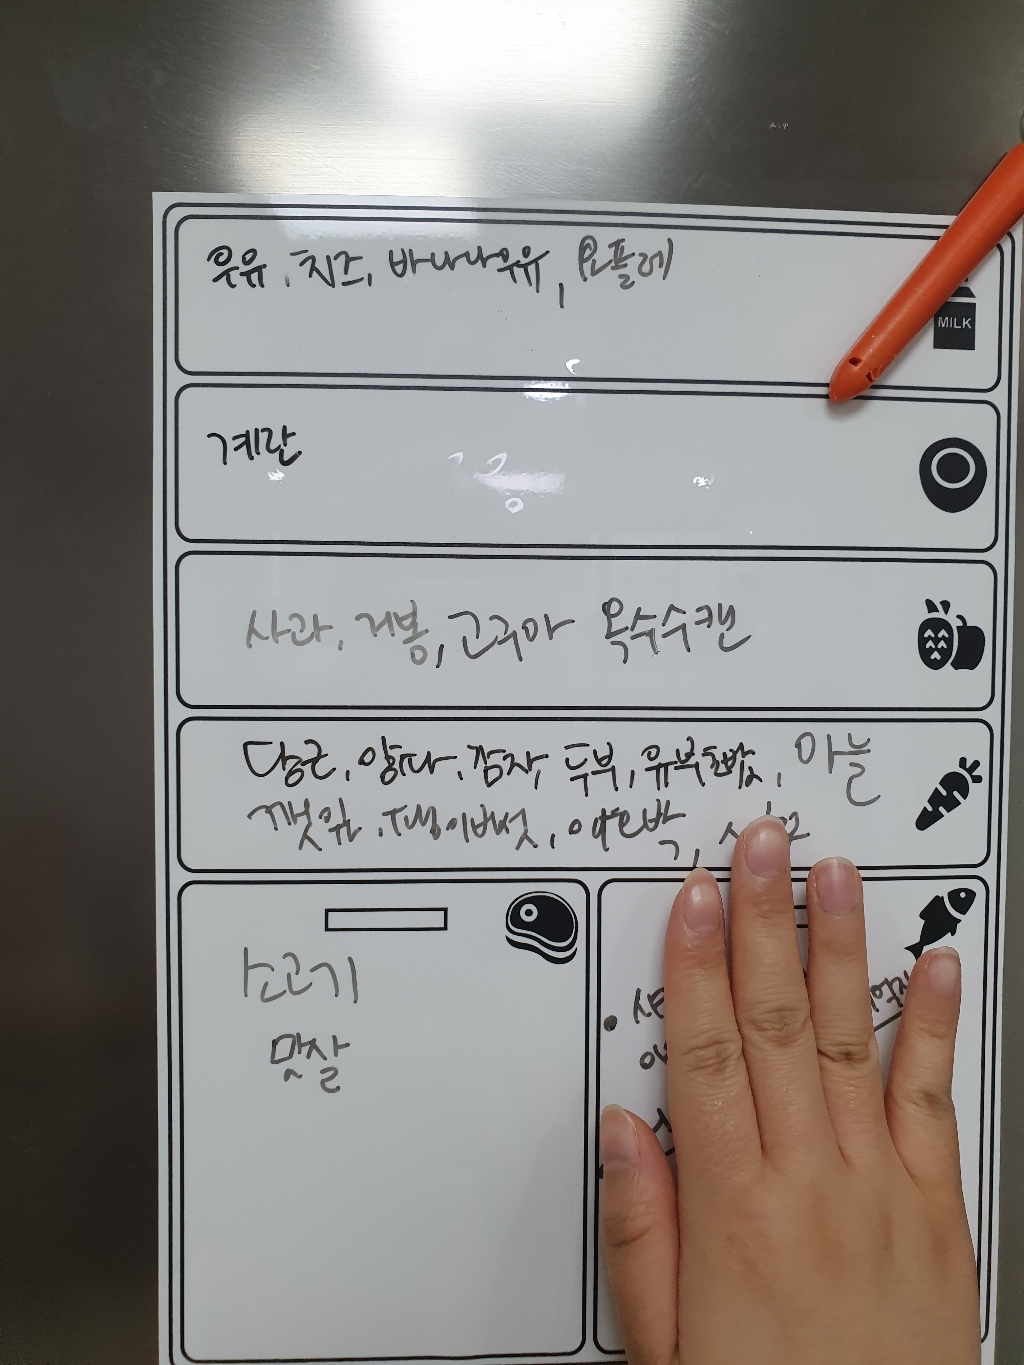 우유, 치즈, 바나나우유, 요플레
MILK
계란
사과, 거봉, 고구마 옥수수캔
당근, 양파, 감자, 두부, 유부초밥, 마늘
깻잎, 팽이버섯, 애호박,
소고기
맛살